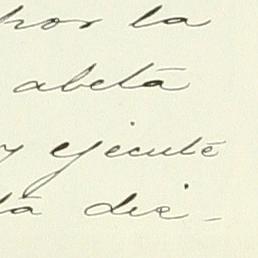 por la
abetá
y ejecute
tá dic-